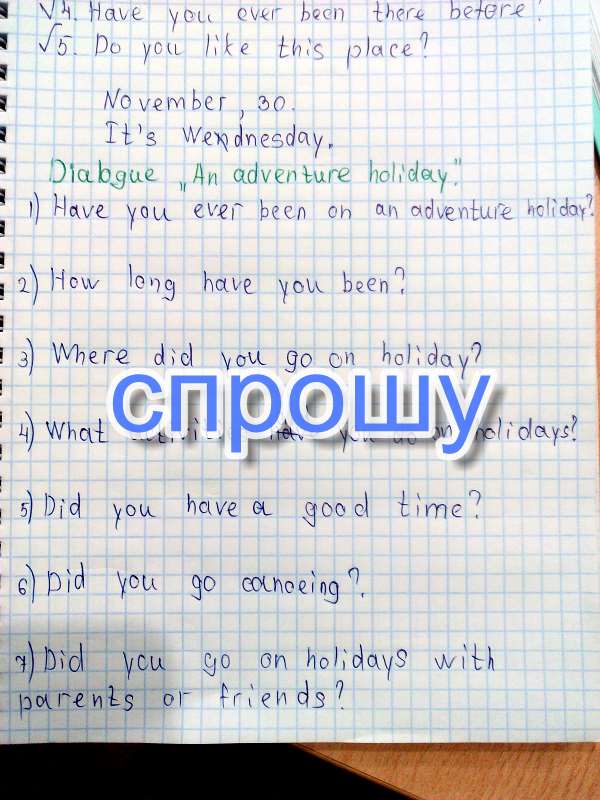 √4. Have you ever been there before?
√5. Do you like this place?
November, 30.
It's Wendnesday.
Dialogue „An adventure holiday."
1) Have you ever been on an adventure holiday?
2) How long have you been?
3) Where did you go on holiday?
спрошу
4) What you do on holidays?
5) Did you have a good time?
6) Did you go canoeing?
7) Did you go on holidays with
parents or friends?